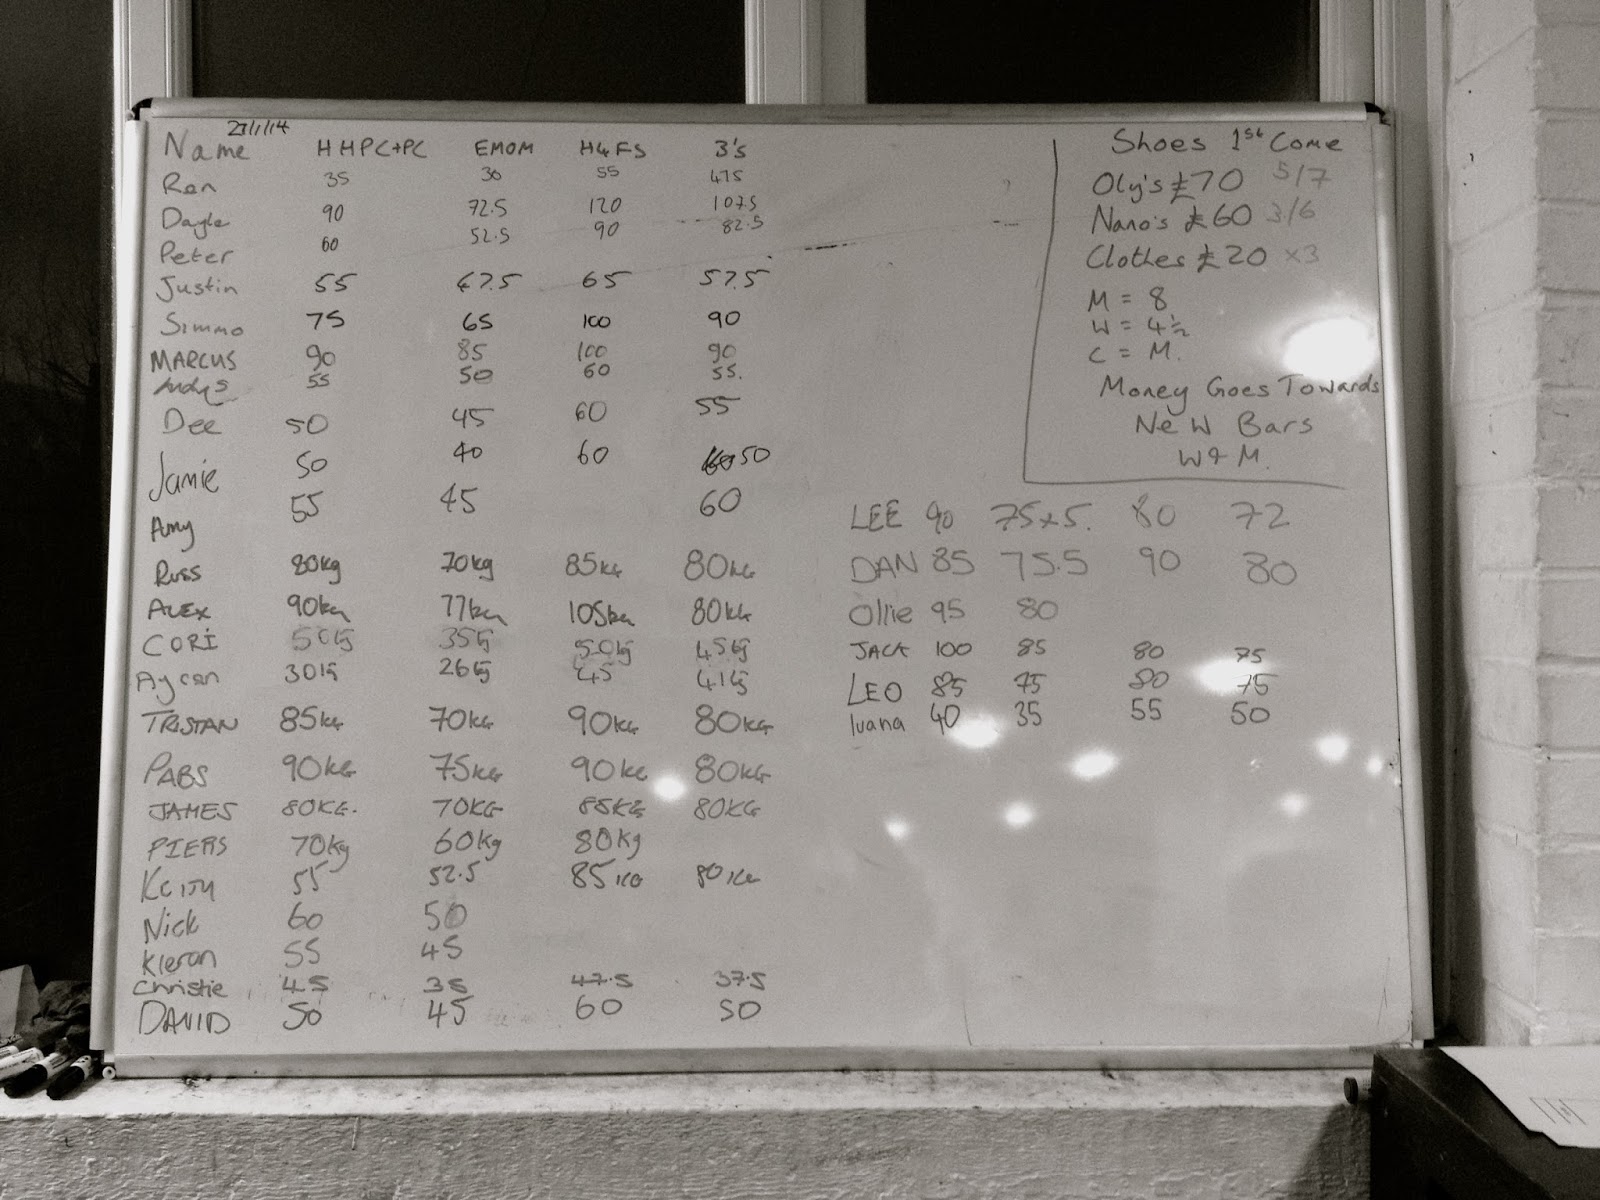 Name HHPC+PC EMOM H4FS 3's
Ren 35 30 55 47.5
Dayle 90 72.5 120 107.5
Peter 60 52.5 90 82.5
Justin 55 47.5 65 57.5
Simmo 75 65 100 90
MARCUS 90 85 100 90
55 50 60 55.
Dee 50 45 60 55
Jamie 50 40 60 50
Amy 55 45 60
Russ 80kg 70kg 85kg 80kg
ALEX 90kg 77kg 105kg 80kg
CORI 50kg 35kg 50kg 45kg
Aycan 30kg 26kg 45 41kg
TRISTAN 85kg 70kg 90kg 80kg
PABS 90KG 75KG 90KG 80KG
JAMES 80KG. 70KG 85KG 80KG
PIERS 70kg 60kg 80kg
Keith 55 52.5 85KG 80KG
Nick 60 50
Kieran 55 45
Christie 45 35 47.5 37.5
DAVID 50 45 60 50
Shoes 1st Come
Oly's £70 5/7
Nano's £60 3/6
Clothes £20 x3
M = 8
W = 4½
C = M.
Money Goes Towards
New Bars
W+M.
LEE 90 75x5. 80 72
DAN 85 75.5 90 80
Ollie 95 80
JACK 100 85 80 75
LEO 85 75 80 75
Ivana 40 35 55 50